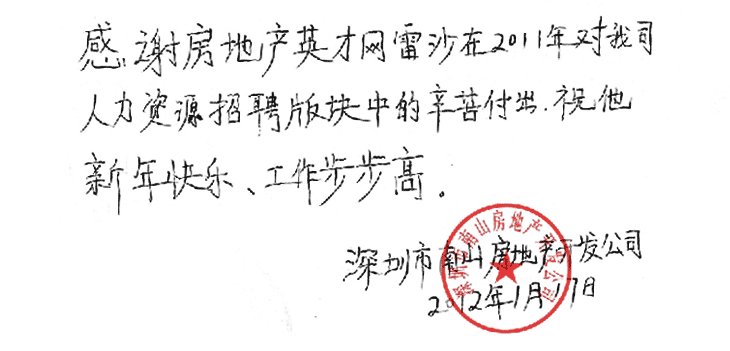 感谢房地产英才网雷沙在2011年对我司
人力资源招聘版块中的辛苦付出.祝他
新年快乐、工作步步高。
深圳市南山房地产开发公司
2012年1月17日